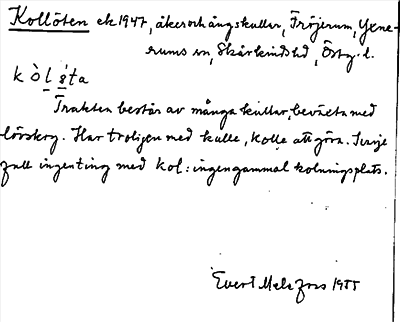 Kollöten ek 1947, åker och ängskullar, Fröjerum, Yxne-
rums sn, Skärkinds hd, Östg. l.
kòl ta
Trakten består av många kullar, beväxta med
lövskog. Har troligen med kulle, kolle att göra. I varje
fall ingenting med kol: ingen gammal kolningsplats.
Evert Melefors 1955